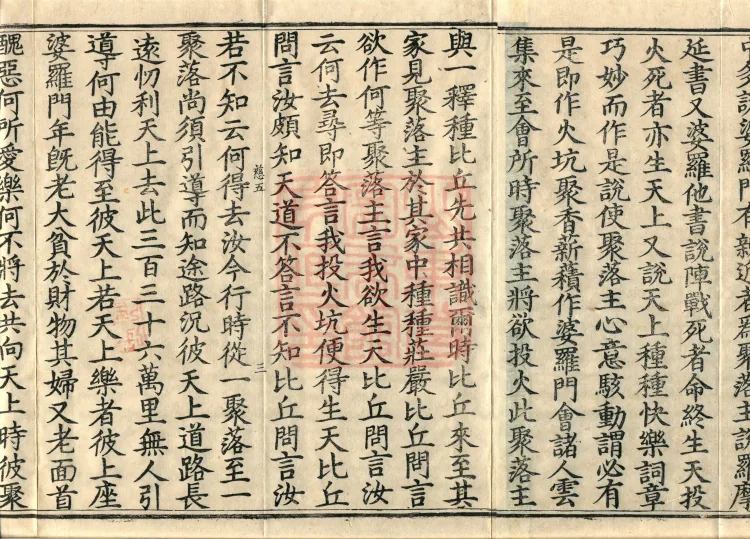 婆羅門造者聚落主說羅摩
延書又婆羅他書說陣戰死者命終生天投
火死者亦生天上又說天上種種快樂詞章
巧妙而作是說使聚落主心意駭動謂必有
是即作火坑聚香薪𧂐作婆羅門會諸人雲
集來至會所時聚落主將欲投火此聚落主
與一釋種比丘先共相識爾時比丘來至其
家見聚落主於其家中種種莊嚴比丘問言
欲作何等聚落主言我欲生天比丘問言汝
云何去尋即答言我投火坑便得生天比丘
問言汝頗知天道不答言不知比丘問言汝
慈五 三
若不知云何得去汝今行時從一聚落至一
聚落尚須引導而知途路況彼天上道路長
遠忉利天上去此三百三十六萬里無人引
導何由能得至彼天上若天上樂者彼上座
婆羅門年旣老大貧於財物其婦又老面首
醜惡何所愛樂何不將去共向天上時彼聚